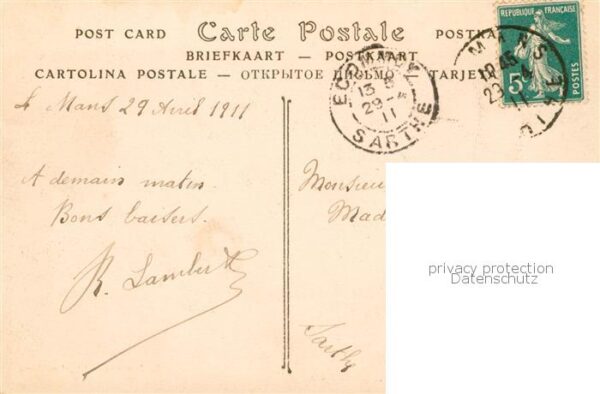 POST CARD Carte Postale POSTKA
BRIEFKAART — POSTKAART
CARTOLINA POSTALE — ОТКРЫТОЕ ПИСЬМО TARJET
REPUBLIQUE FRANÇAISE
5c
POSTES
MANS
10 45
29 -4
11
13 5
29 -4
11
SARTHE
Le Mans 29 Avril 1911
A demain matin.
Bons baisers.
R. Lambert
Monsieu
Mad
Sarthe
privacy protection
Datenschutz